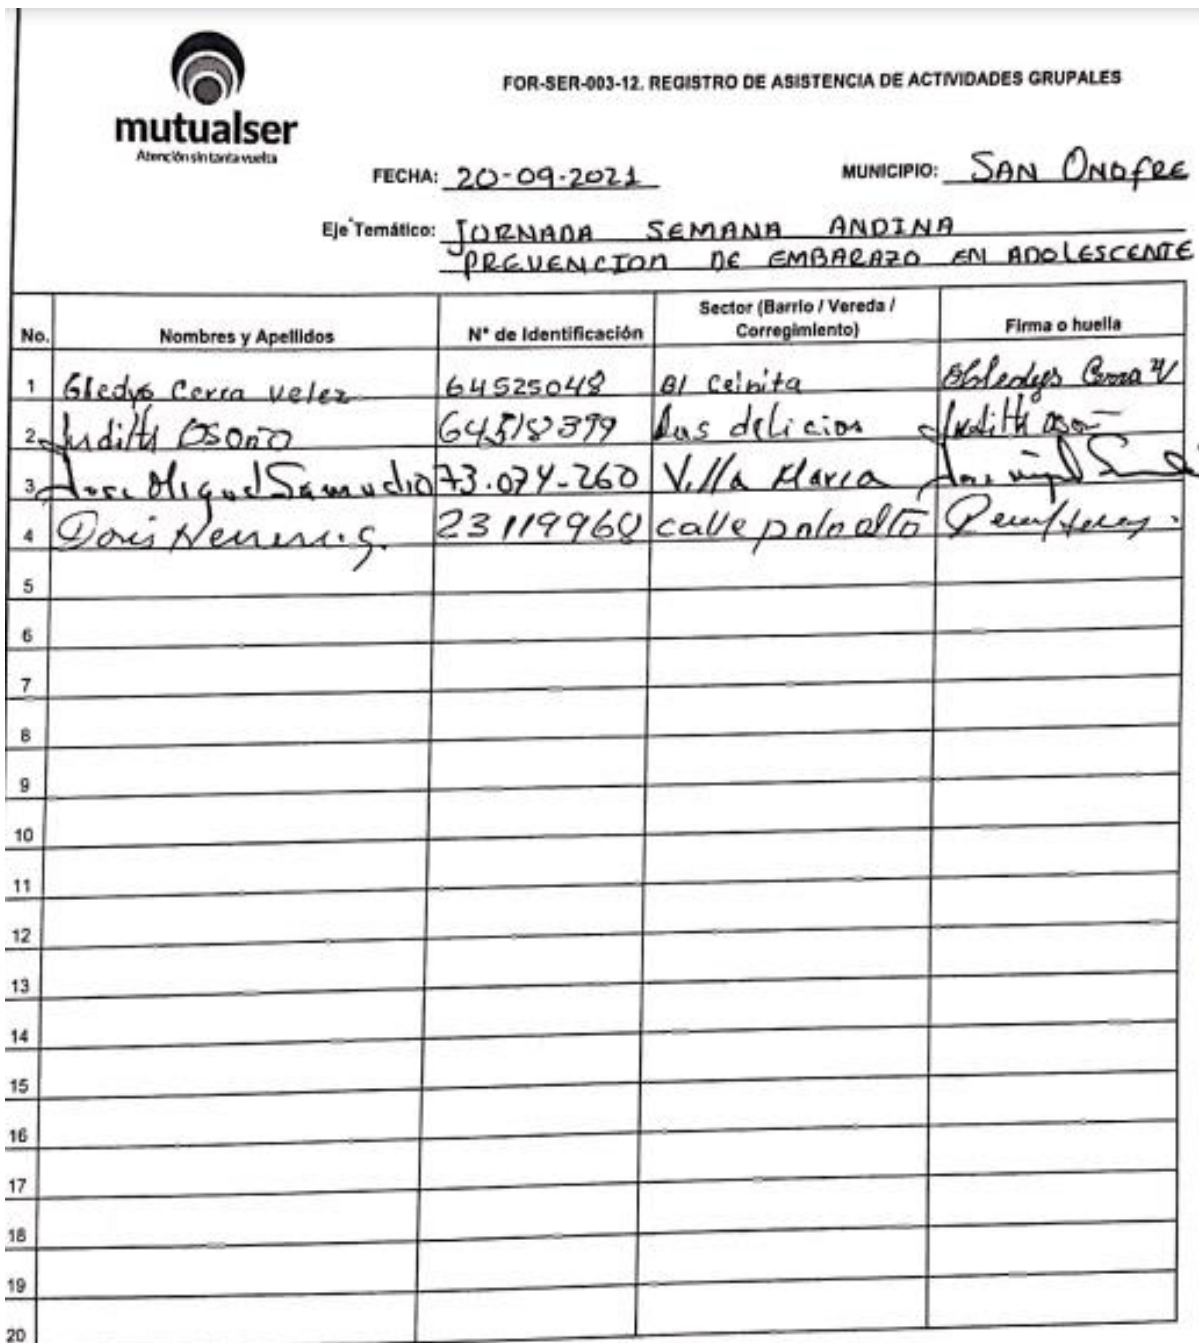 mutualser
Atención sin tanta vuelta
FOR-SER-003-12. REGISTRO DE ASISTENCIA DE ACTIVIDADES GRUPALES
FECHA: 20-09-2021 MUNICIPIO: SAN ONOFRE
Eje Temático: JORNADA SEMANA ANDINA
PREVENCION DE EMBARAZO EN ADOLESCENTE
No. Nombres y Apellidos N° de Identificación Sector (Barrio / Vereda / Corregimiento) Firma o huella
1 Gledys Cerra Velez 64525048 Bl Ceinita
2 Judith Osorio 64518399 Las delicias Judith
3 Jose Miguel Samudio 73.074-260 Villa Maria
4 Doris Herrera G. 23119968 calle palo alto
5
6
7
8
9
10
11
12
13
14
15
16
17
18
19
20